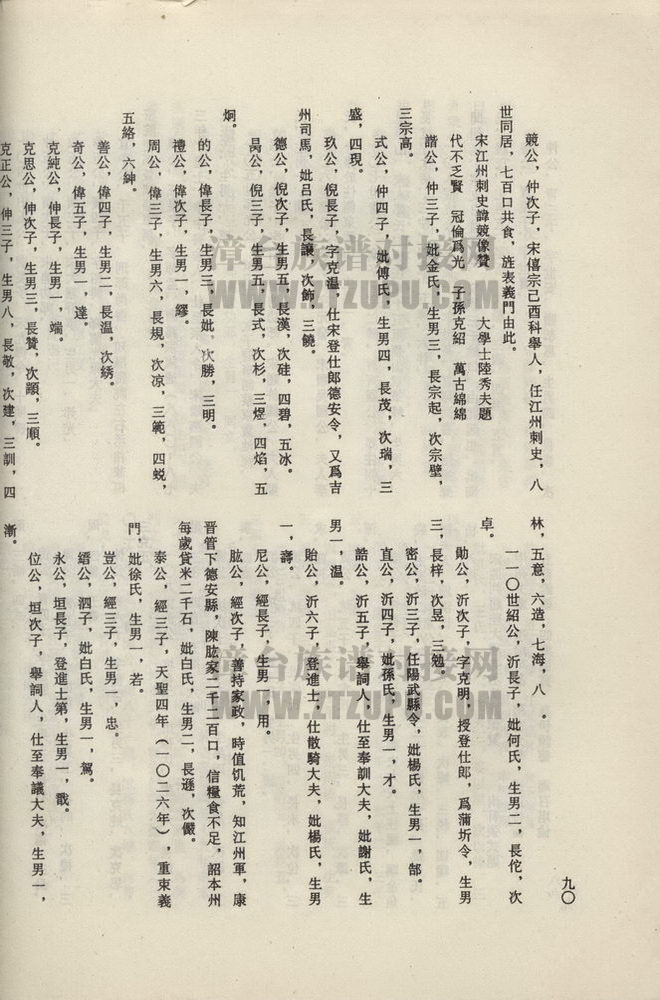 競公，仲次子，宋僖宗己酉科舉人，任江州刺史，八
世同居，七百口共食，旌表義門由此。
宋江州刺史諱競像贊　大學士陸秀夫題
代不乏賢　冠倫爲光　子孫克紹　萬古綿綿
譜公，仲三子，妣金氏，生男三，長宗起，次宗璧，
三宗高。
式公，仲四子，妣傅氏，生男四，長茂，次瑞，三
盛，四現。
玖公，倪長子，字克溫，仕宋登仕郎德安令，又爲吉
州司馬，妣吕氏，長讓，次飾，三饒。
德公，倪次子，生男五，長漢，次硅，四碧，五冰。
昺公，倪三子，生男五，長式，次杉，三煜，四焰，五
炯。
的公，偉長子，生男三，長妣，次勝，三明。
禮公，偉次子，生男一，繆。
周公，偉三子，生男六，長規，次凉，三範，四蜕，
五絡，六紳。
善公，偉四子，生男二，長溫，次綉。
奇公，偉五子，生男一，達。
克純公，伸長子，生男一，端。
克思公，伸次子，生男三，長贊，次顯，三順。
克正公，伸三子，生男八，長敬，次建，三訓，四漸。
林，五意，六造，七海，八　。
一一〇世紹公，沂長子，妣何氏，生男二，長佗，次
卓。
勛公，沂次子，字克明，授登仕郎，爲蒲圻令，生男
三，長梓，次昱，三勉。
密公，沂三子，任陽武縣令，妣楊氏，生男一，郜。
直公，沂四子，妣孫氏，生男一，才。
誥公，沂五子，舉詞人，仕至奉訓大夫，妣謝氏，生
男一，溫。
貽公，沂六子，登進士，仕散騎大夫，妣楊氏，生男
一，濤。
尼公，經長子，生男一，用。
肱公，經次子，善持家政，時值饥荒，知江州軍，康
晉管下德安縣，陳肱家二千二百口，信糧食不足，詔本州
每歲貸米二千石，妣白氏，生男二，長遜，次儼。
泰公，經三子，天聖四年（一〇二六年），重束義
門，妣徐氏，生男一，若。
豈公，經三子，生男一，忠。
縉公，泗子，妣白氏，生男一，駕。
永公，垣長子，登進士第，生男一，戬。
位公，垣次子，舉詞人，仕至奉議大夫，生男一，
九〇
漳台族谱对接网
WWW.ZTZUPU.COM
漳台族谱对接网
WWW.ZTZUPU.COM